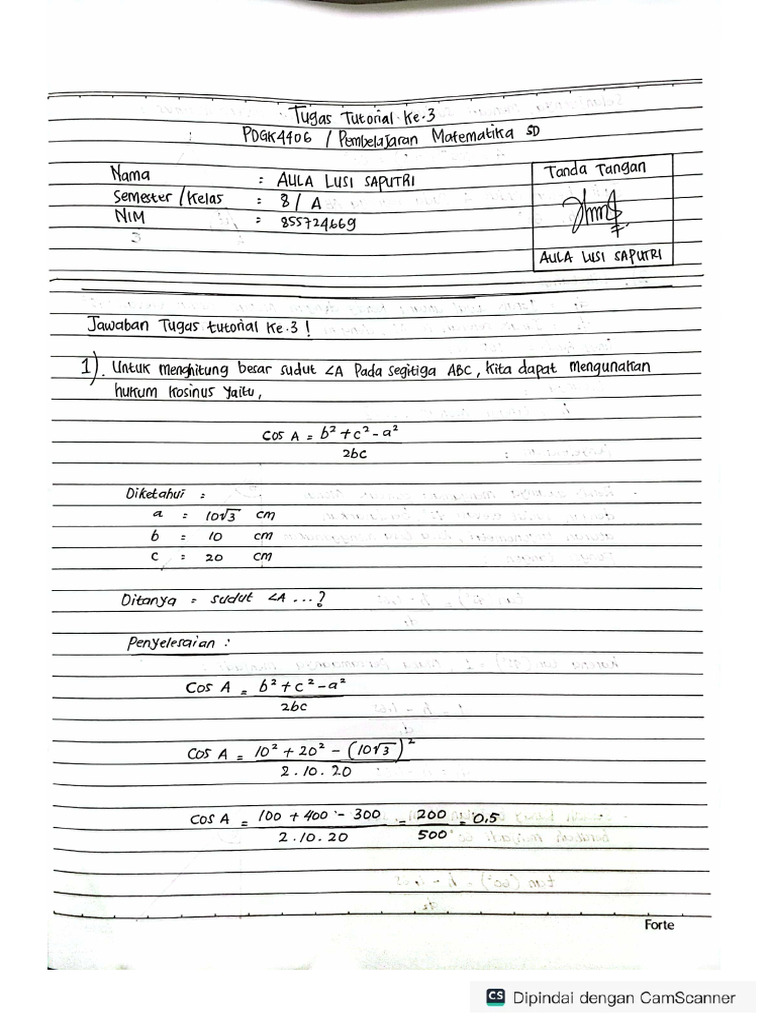 Tugas Tutorial Ke.3
PDGK4406 / Pembelajaran Matematika SD
Nama : AULA LUSI SAPUTRI
Semester / Kelas : 8 / A
NIM : 855724669
Tanda Tangan
AULA LUSI SAPUTRI
Jawaban Tugas tutorial Ke.3 !
1). Untuk menghitung besar sudut ∠A Pada segitiga ABC, Kita dapat mengunakan
hukum Kosinus Yaitu,
cos A = b² + c² - a²
2bc
Diketahui :
a = 10√3 cm
b = 10 cm
c = 20 cm
Ditanya = sudut ∠A ... ?
Penyelesaian :
Cos A = b² + c² - a²
2bc
Cos A = 10² + 20² - (10√3)²
2 . 10 . 20
Cos A = 100 + 400 - 300 = 200 = 0,5
2 . 10 . 20 500
Forte
CS Dipindai dengan CamScanner